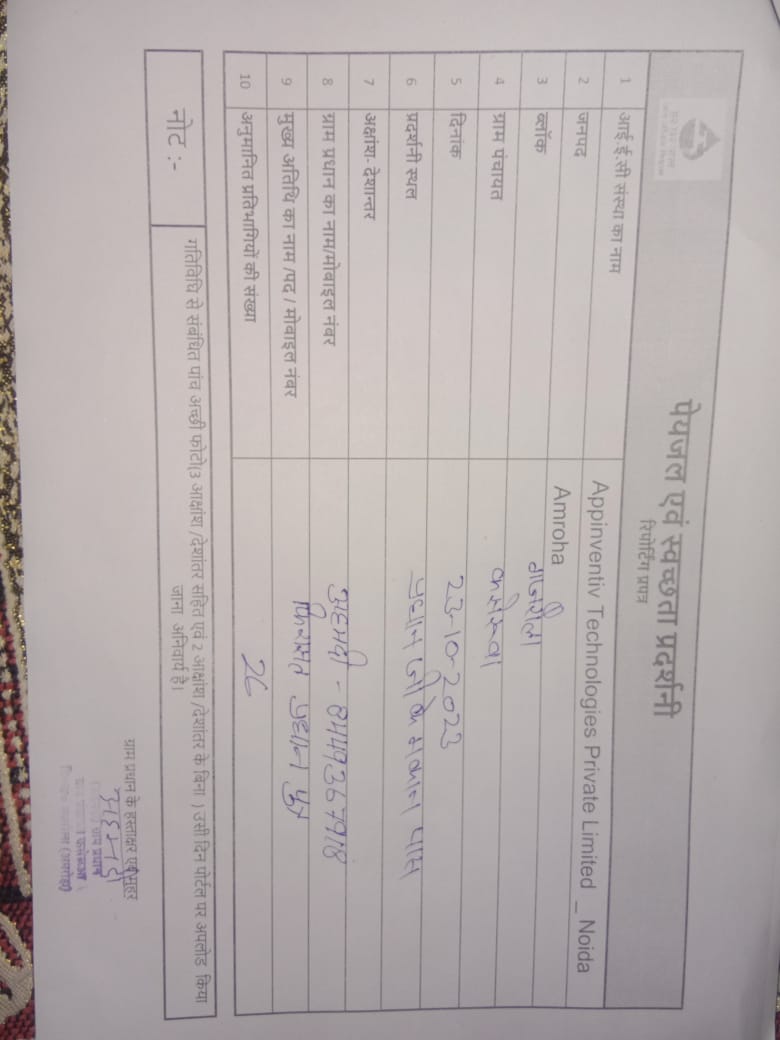 पेयजल एवं स्वच्छता प्रदर्शनी
रिपोर्टिंग प्रपत्र
1 आई.ई.सी संस्था का नाम Appinventiv Technologies Private Limited _ Noida
2 जनपद Amroha
3 ब्लॉक
4 ग्राम पंचायत
5 दिनांक 23-10-2023
6 प्रदर्शनी स्थल प्रधान जी के मकान पास
7 अक्षांश- देशान्तर
8 ग्राम प्रधान का नाम/मोबाइल नंबर
9 मुख्य अतिथि का नाम /पद / मोबाइल नंबर प्रधान पुत्र
10 अनुमानित प्रतिभागियों की संख्या
नोट :- गतिविधि से संबंधित पांच अच्छी फोटो(3 आक्षांश /देशांतर सहित एवं 2 आक्षांश /देशांतर के बिना ) उसी दिन पोर्टल पर अपलोड किया
जाना अनिवार्य है।
ग्राम प्रधान के हस्ताक्षर एवं मुहर